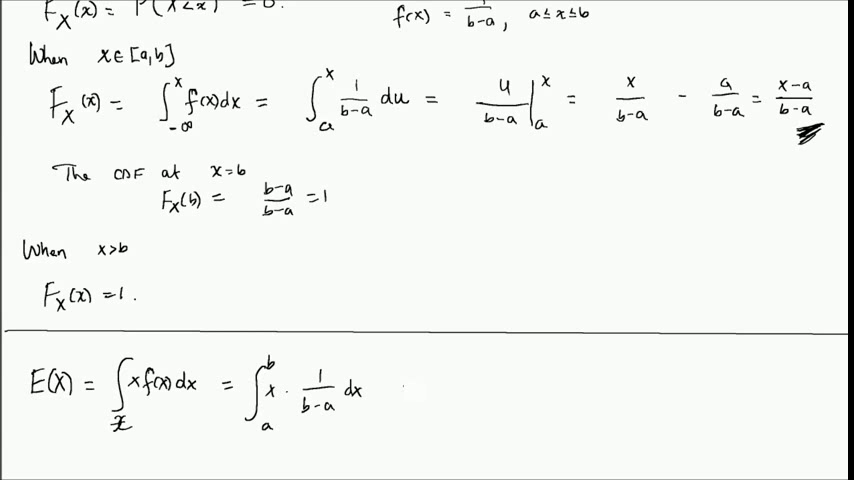 F_X(x) = P(X<x) = 0.
f(x) = 1/(b-a), a≤x≤b
When x∈[a,b]
F_X(x) = ∫_{-∞}^{x} f(x)dx = ∫_{a}^{x} 1/(b-a) du = u/(b-a) |_{a}^{x} = x/(b-a) - a/(b-a) = (x-a)/(b-a)
The CDF at x=b
F_X(b) = (b-a)/(b-a) = 1
When x>b
F_X(x) = 1.
E(X) = ∫_{𝒳} x f(x) dx = ∫_{a}^{b} x · 1/(b-a) dx